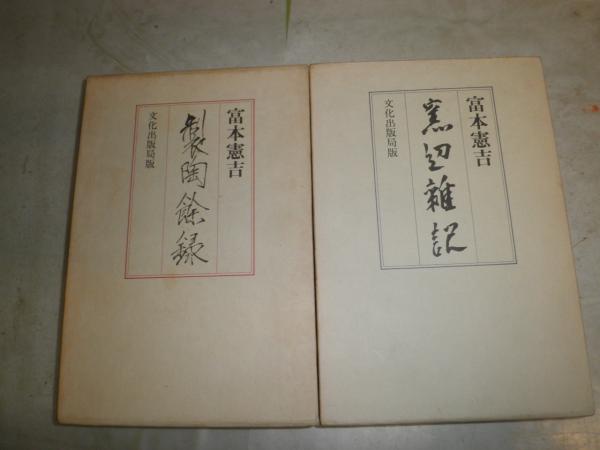 富本憲吉
製陶餘録
文化出版局版
富本憲吉
窯辺雑記
文化出版局版